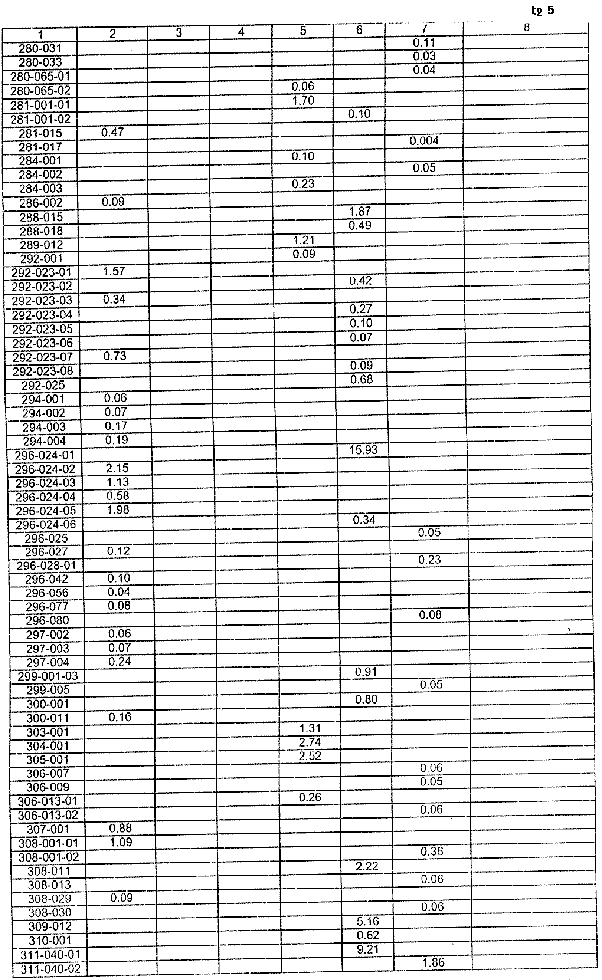 էջ 5
1 2 3 4 5 6 7 8
280-031 0.11
280-033 0.03
280-065-01 0.04
280-065-02 0.06
281-001-01 1.70
281-001-02 0.10
281-015 0.47
281-017 0.004
284-001 0.10
284-002 0.05
284-003 0.23
286-002 0.09
288-015 1.87
288-018 0.49
289-012 1.21
292-001 0.09
292-023-01 1.57
292-023-02 0.42
292-023-03 0.34
292-023-04 0.27
292-023-05 0.10
292-023-06 0.07
292-023-07 0.73
292-023-08 0.09
292-025 0.68
294-001 0.06
294-002 0.07
294-003 0.17
294-004 0.19
296-024-01 15.93
296-024-02 2.15
296-024-03 1.13
296-024-04 0.58
296-024-05 1.98
296-024-06 0.34
296-025 0.05
296-027 0.12
296-028-01 0.23
296-042 0.10
296-056 0.04
296-077 0.08
296-080 0.08
297-002 0.06
297-003 0.07
297-004 0.24
299-001-03 0.91
299-005 0.05
300-001 0.80
300-011 0.16
303-001 1.31
304-001 2.74
305-001 2.52
306-007 0.06
306-009 0.05
306-013-01 0.26
306-013-02 0.06
307-001 0.88
308-001-01 1.09
308-001-02 0.36
308-011 2.22
308-013 0.06
308-029 0.09
308-030 0.06
309-012 5.16
310-001 0.62
311-040-01 9.21
311-040-02 1.86